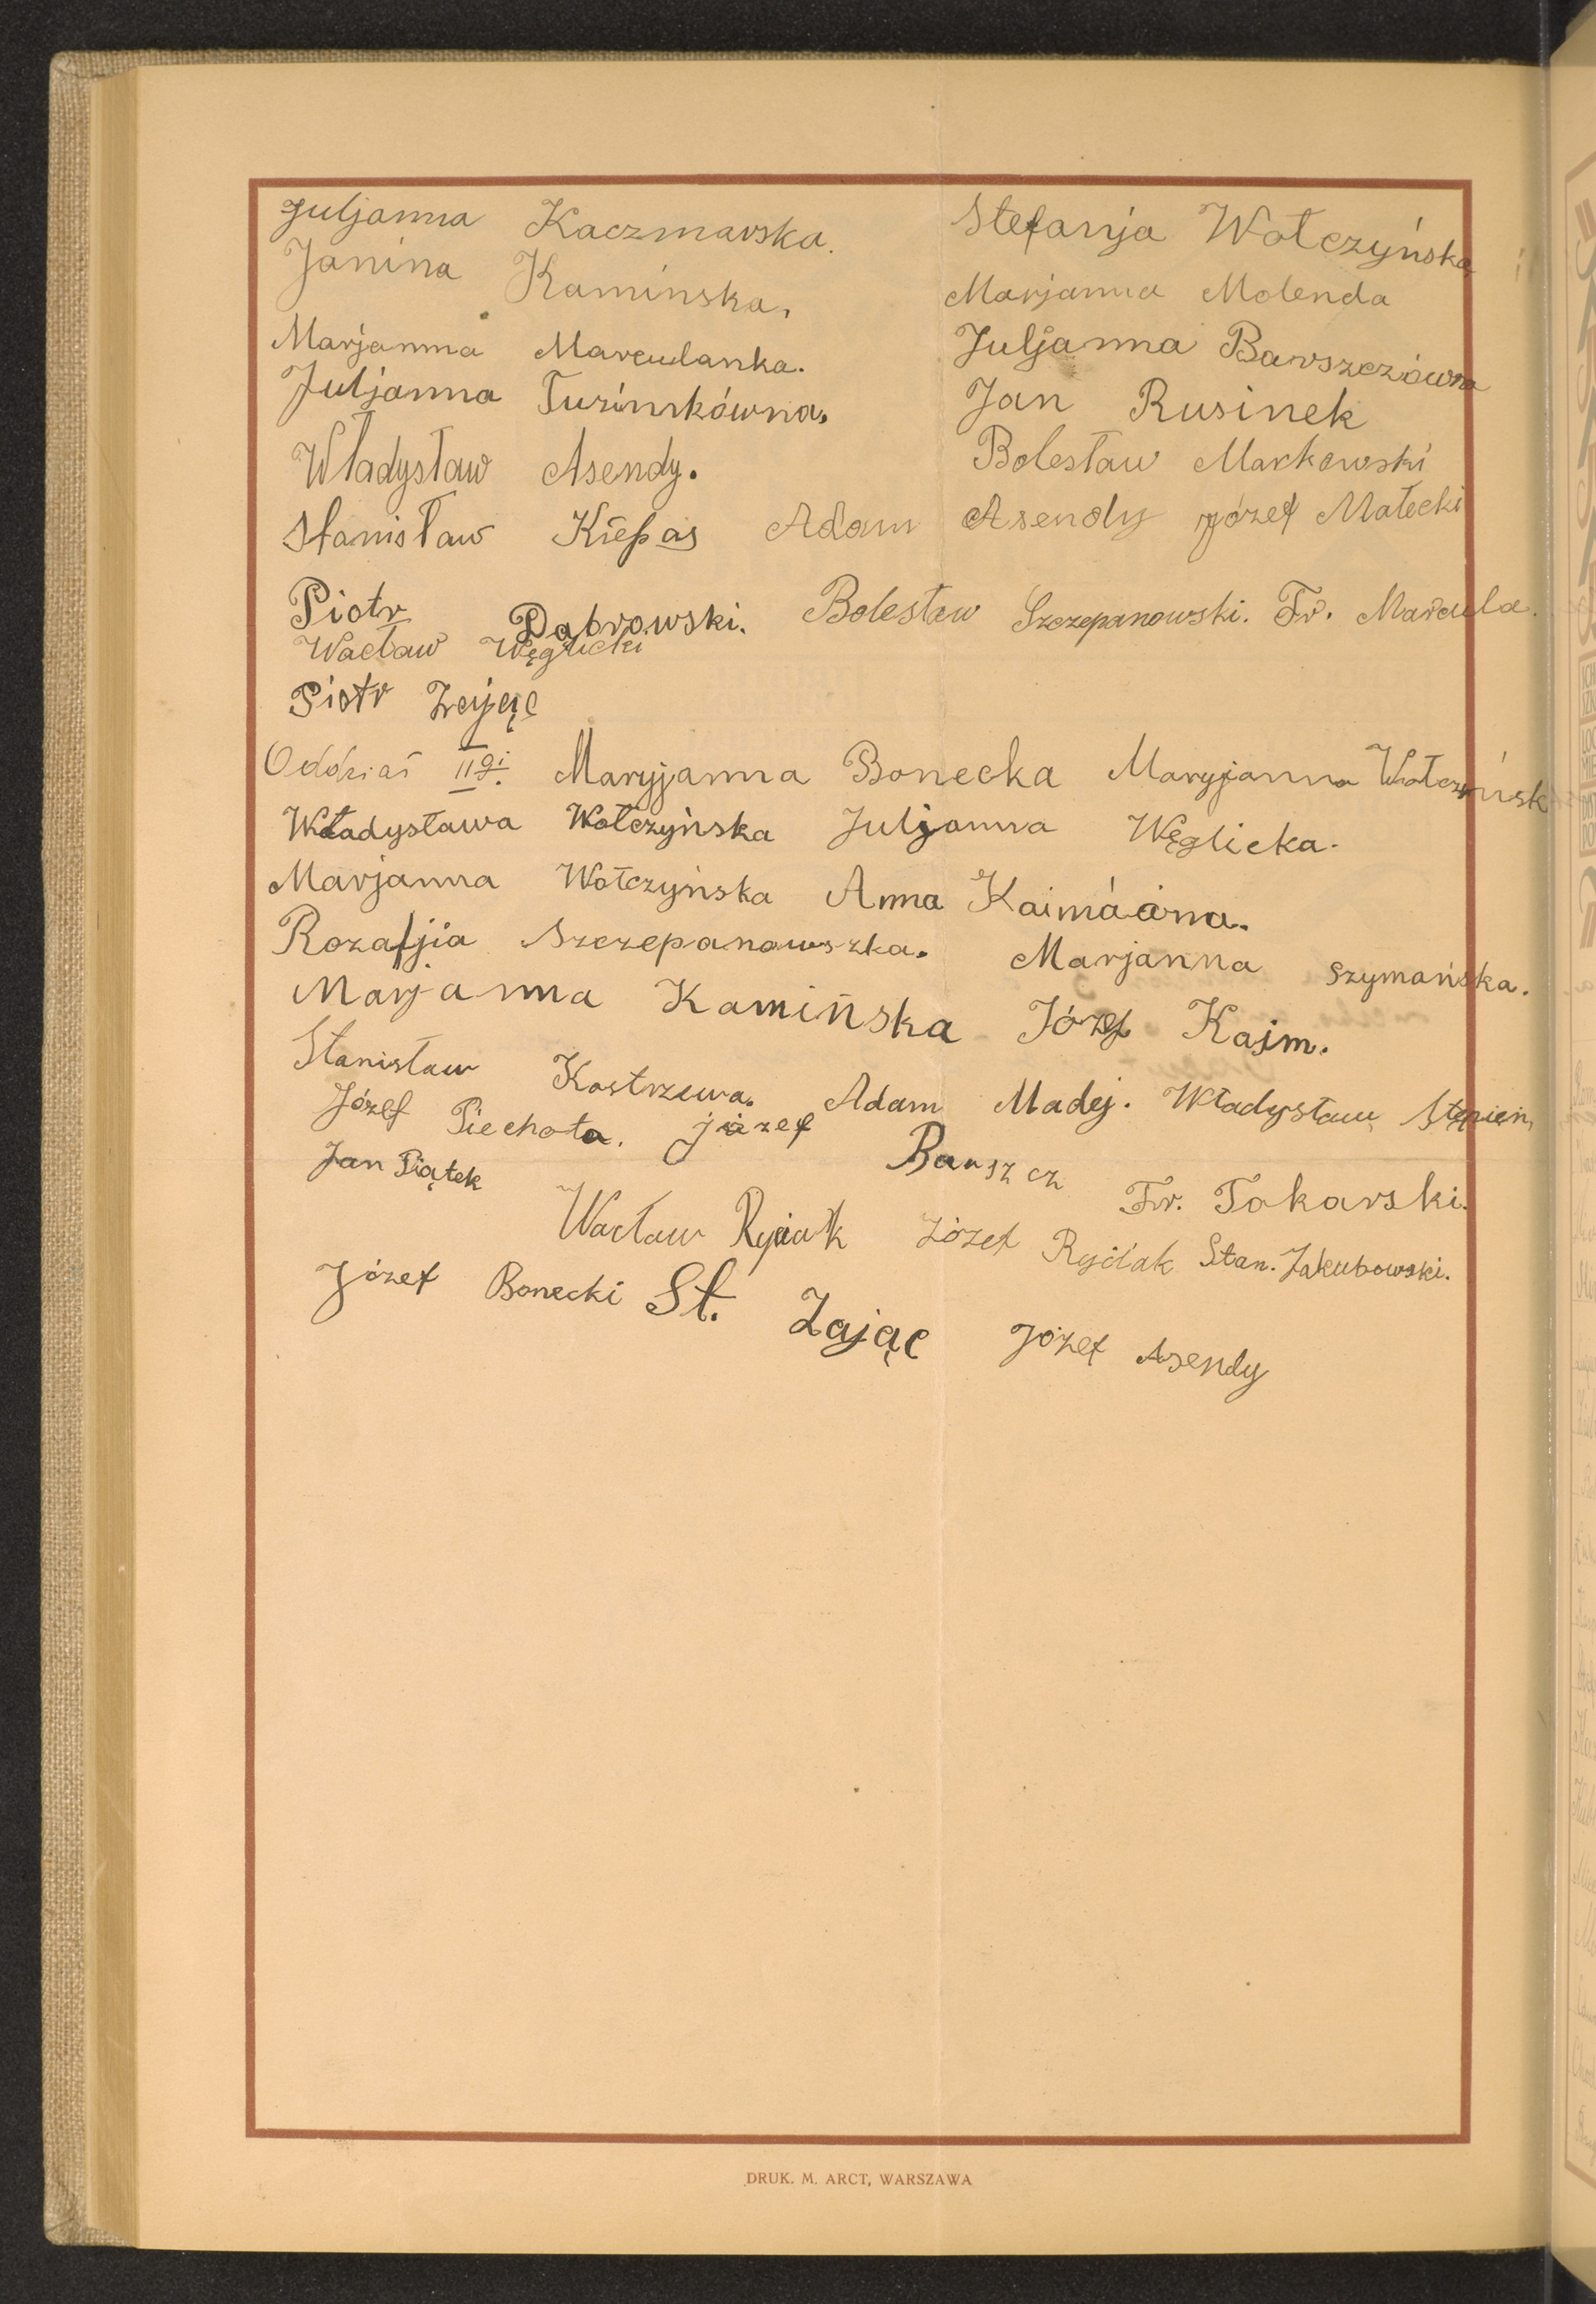 Juljanna Kaczmarska. Stefanja Wołczyńska
Janina Kamińska. Marjanna Molenda
Marjanna Marculanka. Juljanna Barszczówna
Juljanna Jan Rusinek
Władysław Asendy. Bolesław Markowski
Stanisław Kiepas Adam Asendy Józef Małecki
Piotr Dąbrowski. Bolesław Szczepanowski. Fr. Marcula.
Wacław Węglicki
Piotr Zając
Oddział II gi. Maryjanna Bonecka Maryjanna Wołczyńsk
Władysława Wołczyńska Juljanna Węglicka.
Marjanna Wołczyńska Anna
Rozaljia Szczepanowszka. Marjanna Szymańska.
Marjanna Kamińska Józef Kajm.
Stanisław Kostrzewa. Adam Madej. Władysław Stępień,
Józef Piechota. józef Barszcz Fr. Tokarski.
Jan Piątek Wacław Józef Stan. Jakubowski.
Józef Bonecki St. Zając Józef Asendy
DRUK. M. ARCT, WARSZAWA